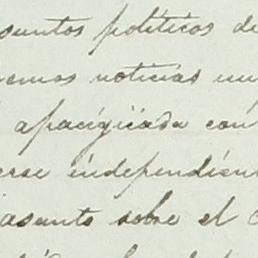 asuntos políticos de
noticias
apacigüada con
independien
asunto sobre el